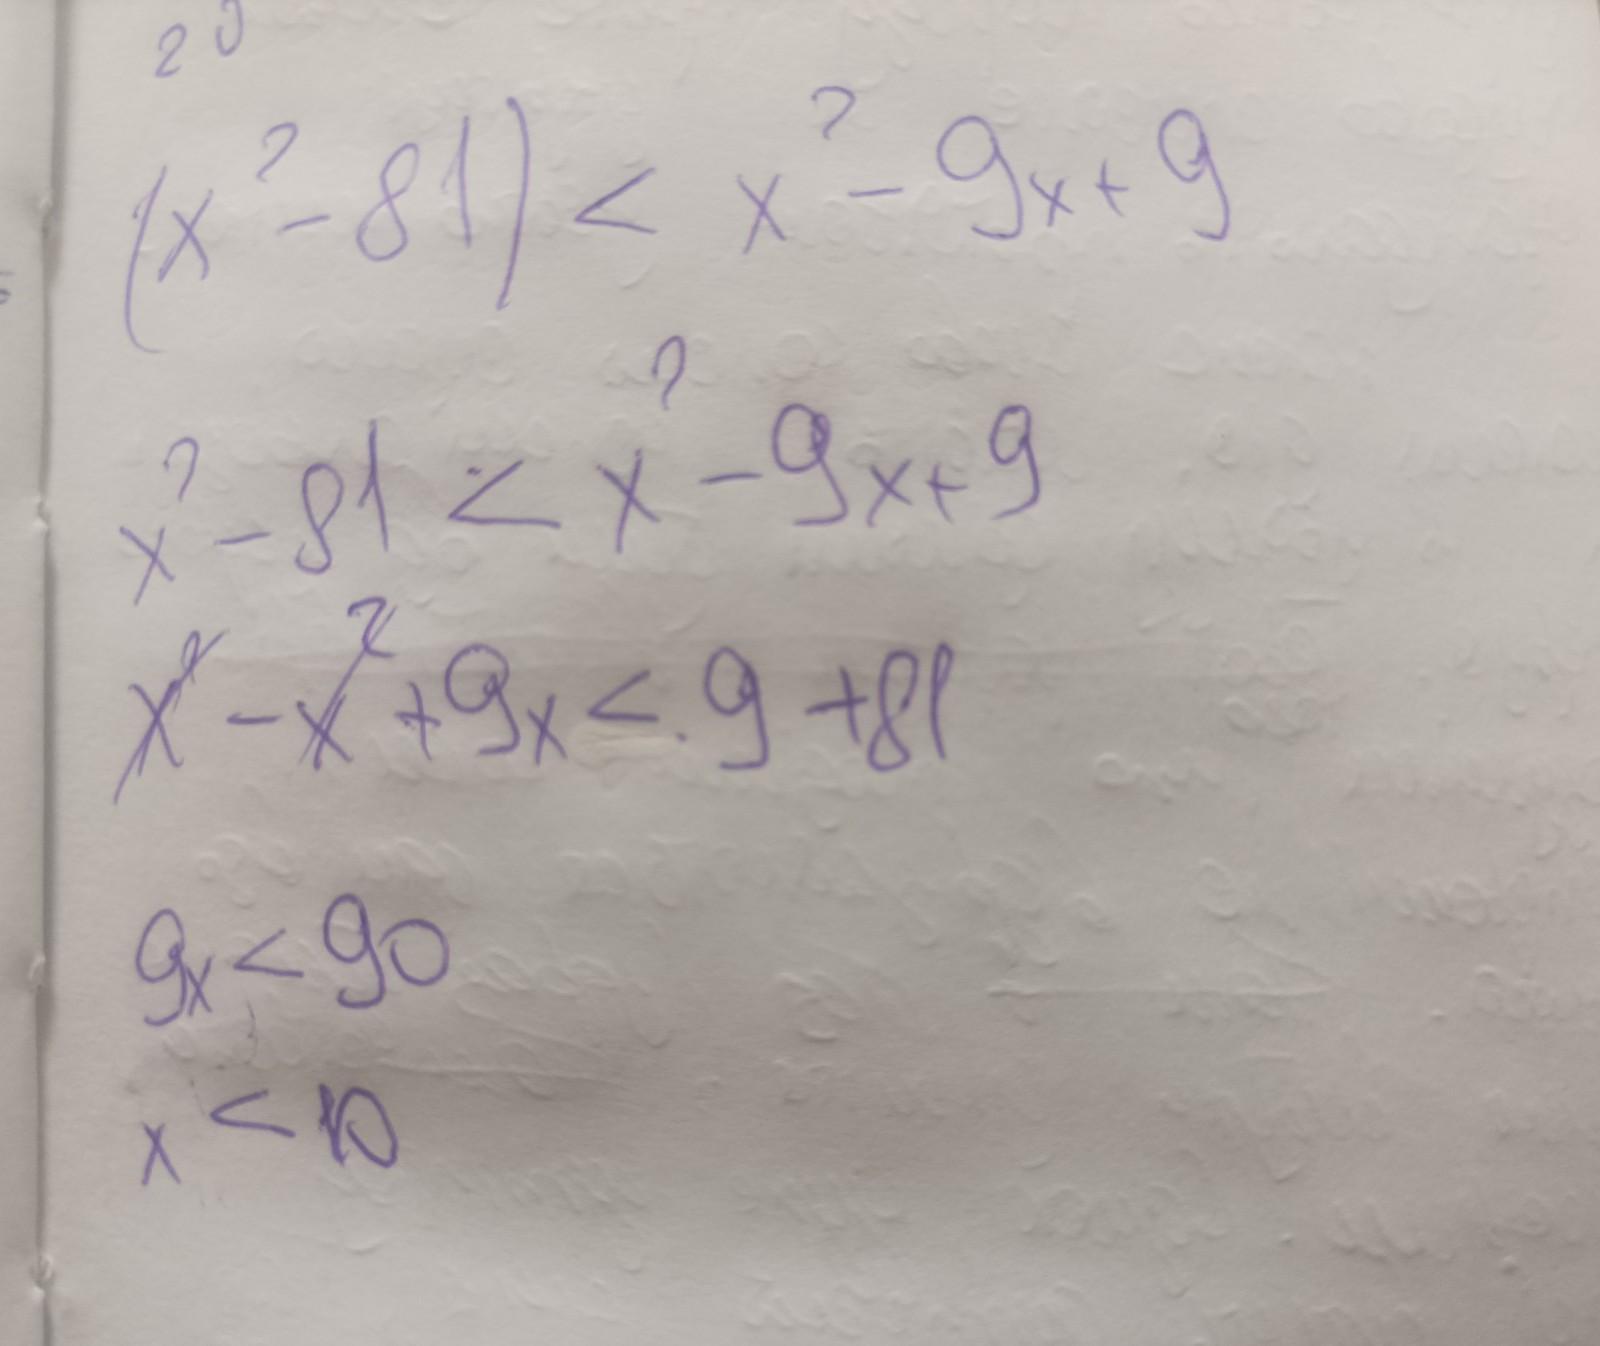 20
(x² - 81) < x² - 9x + 9
x² - 81 < x² - 9x + 9
x² - x² + 9x < 9 + 81
9x < 90
x < 10